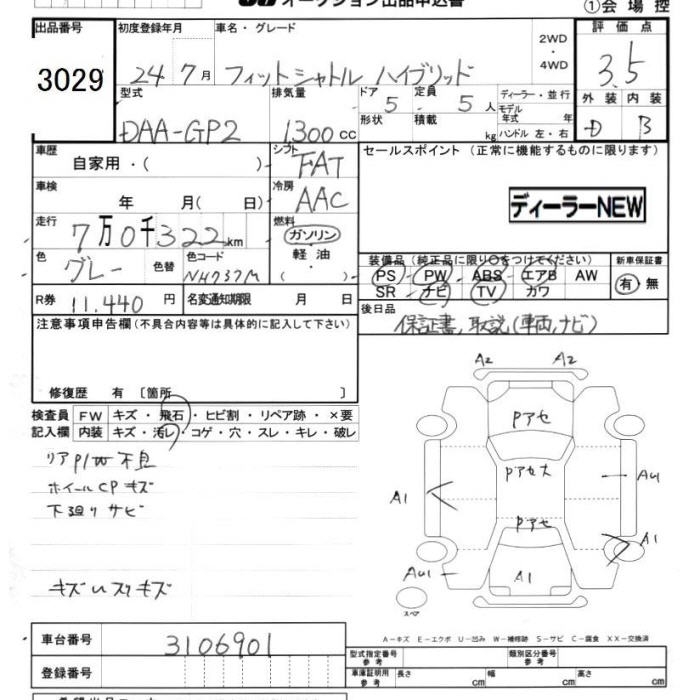 オークション出品申込書
①会場控
出品番号 初度登録年月 車名・グレード 2WD・4WD 評価点
3029 24 7月 フィットシャトル ハイブリッド 3.5
型式 排気量 ドア 5 定員 5人 ディーラー・並行 外装 内装
DAA-GP2 1300cc 形状 積載 kg モデル年式 年 ハンドル 左・右 D B
車歴 自家用・( ) シフト FAT セールスポイント (正常に機能するものに限ります)
車検 年 月( 日) 冷房 AAC
ディーラーNEW
走行 7万0千322km 燃料 ガソリン・軽油・( )
色 グレー 色替 色コード NH737M
装備品 (純正品に限り○をつけてください) 新車保証書
PS PW ABS エアB AW 有・無
SR ナビ TV カワ
R券 11.440円 名変通知期限 月 日
後日品 保証書, 取説(車両,ナビ)
注意事項申告欄 (不具合内容等は具体的に記入して下さい)
修復歴 有 〔箇所 〕
検査員 FW キズ・飛石・ヒビ割・リペア跡・×要
記入欄 内装 キズ・汚レ・コゲ・穴・スレ・キレ・破レ
リアP/W不良
ホイールCPキズ
下廻りサビ
キズいスリキズ
A2 A2
Pアセ
Pアセ大
A1 AU
Pアセ
A1
AU1 A1
スペア
A-キズ E-エクボ U-凹み W-補修跡 S-サビ C-腐食 XX-交換済
車台番号 3106901
型式指定番号 参考 類別区分番号 参考
登録番号
車庫証明用 参考 長さ cm 幅 cm 高さ cm